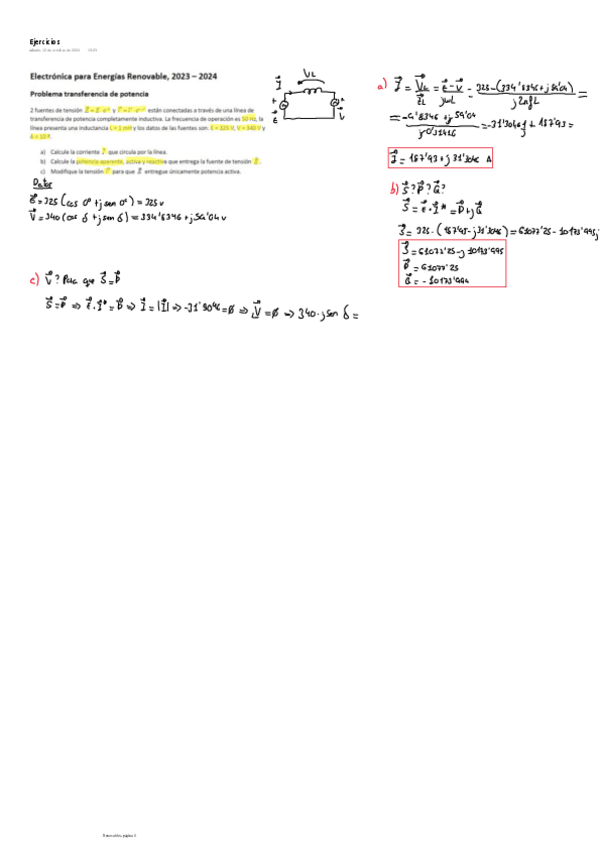 Ejercicios
Electrónica para Energías Renovable, 2023 – 2024
Problema transferencia de potencia
2 fuentes de tensión y están conectadas a través de una línea de
transferencia de potencia completamente inductiva. La frecuencia de operación es 50 Hz, la
línea presenta una inductancia L = 1 mH y los datos de las fuentes son: E = 325 V, V = 340 V y
δ = 10 º.
a) Calcule la corriente I que circula por la línea.
b) Calcule la potencia aparente, activa y reactiva que entrega la fuente de tensión E.
c) Modifique la tensión V para que E entregue únicamente potencia activa.
Datos
E = 325 (cos 0º + j sen 0º) = 325 V
V = 340 (cos δ + j sen δ) = 334'8346 + j 59'04 V
c) V? Para que S = P
S = P ⇒ E · I* = P ⇒ I = |I| ⇒ -31'3046 = ø ⇒ V = ø ⇒ 340 · j sen δ =
VL
I
+
E
+
V
a) I = VL/ZL = (E - V)/jωL = (325 - (334'8346 + j 59'04))/(j2πfL) =
= (-9'8346 + j 59'04)/(j0'31416) = -31'3046 1/j + 187'93 =
I = 187'93 + j 31'3046 A
b) S? P? Q?
S = E · I* = P + jQ
S = 325 · (187'93 - j31'3046) = 61077'25 - 10173'995j
S = 61077'25 - j 10173'995
P = 61077'25
Q = - 10173'994